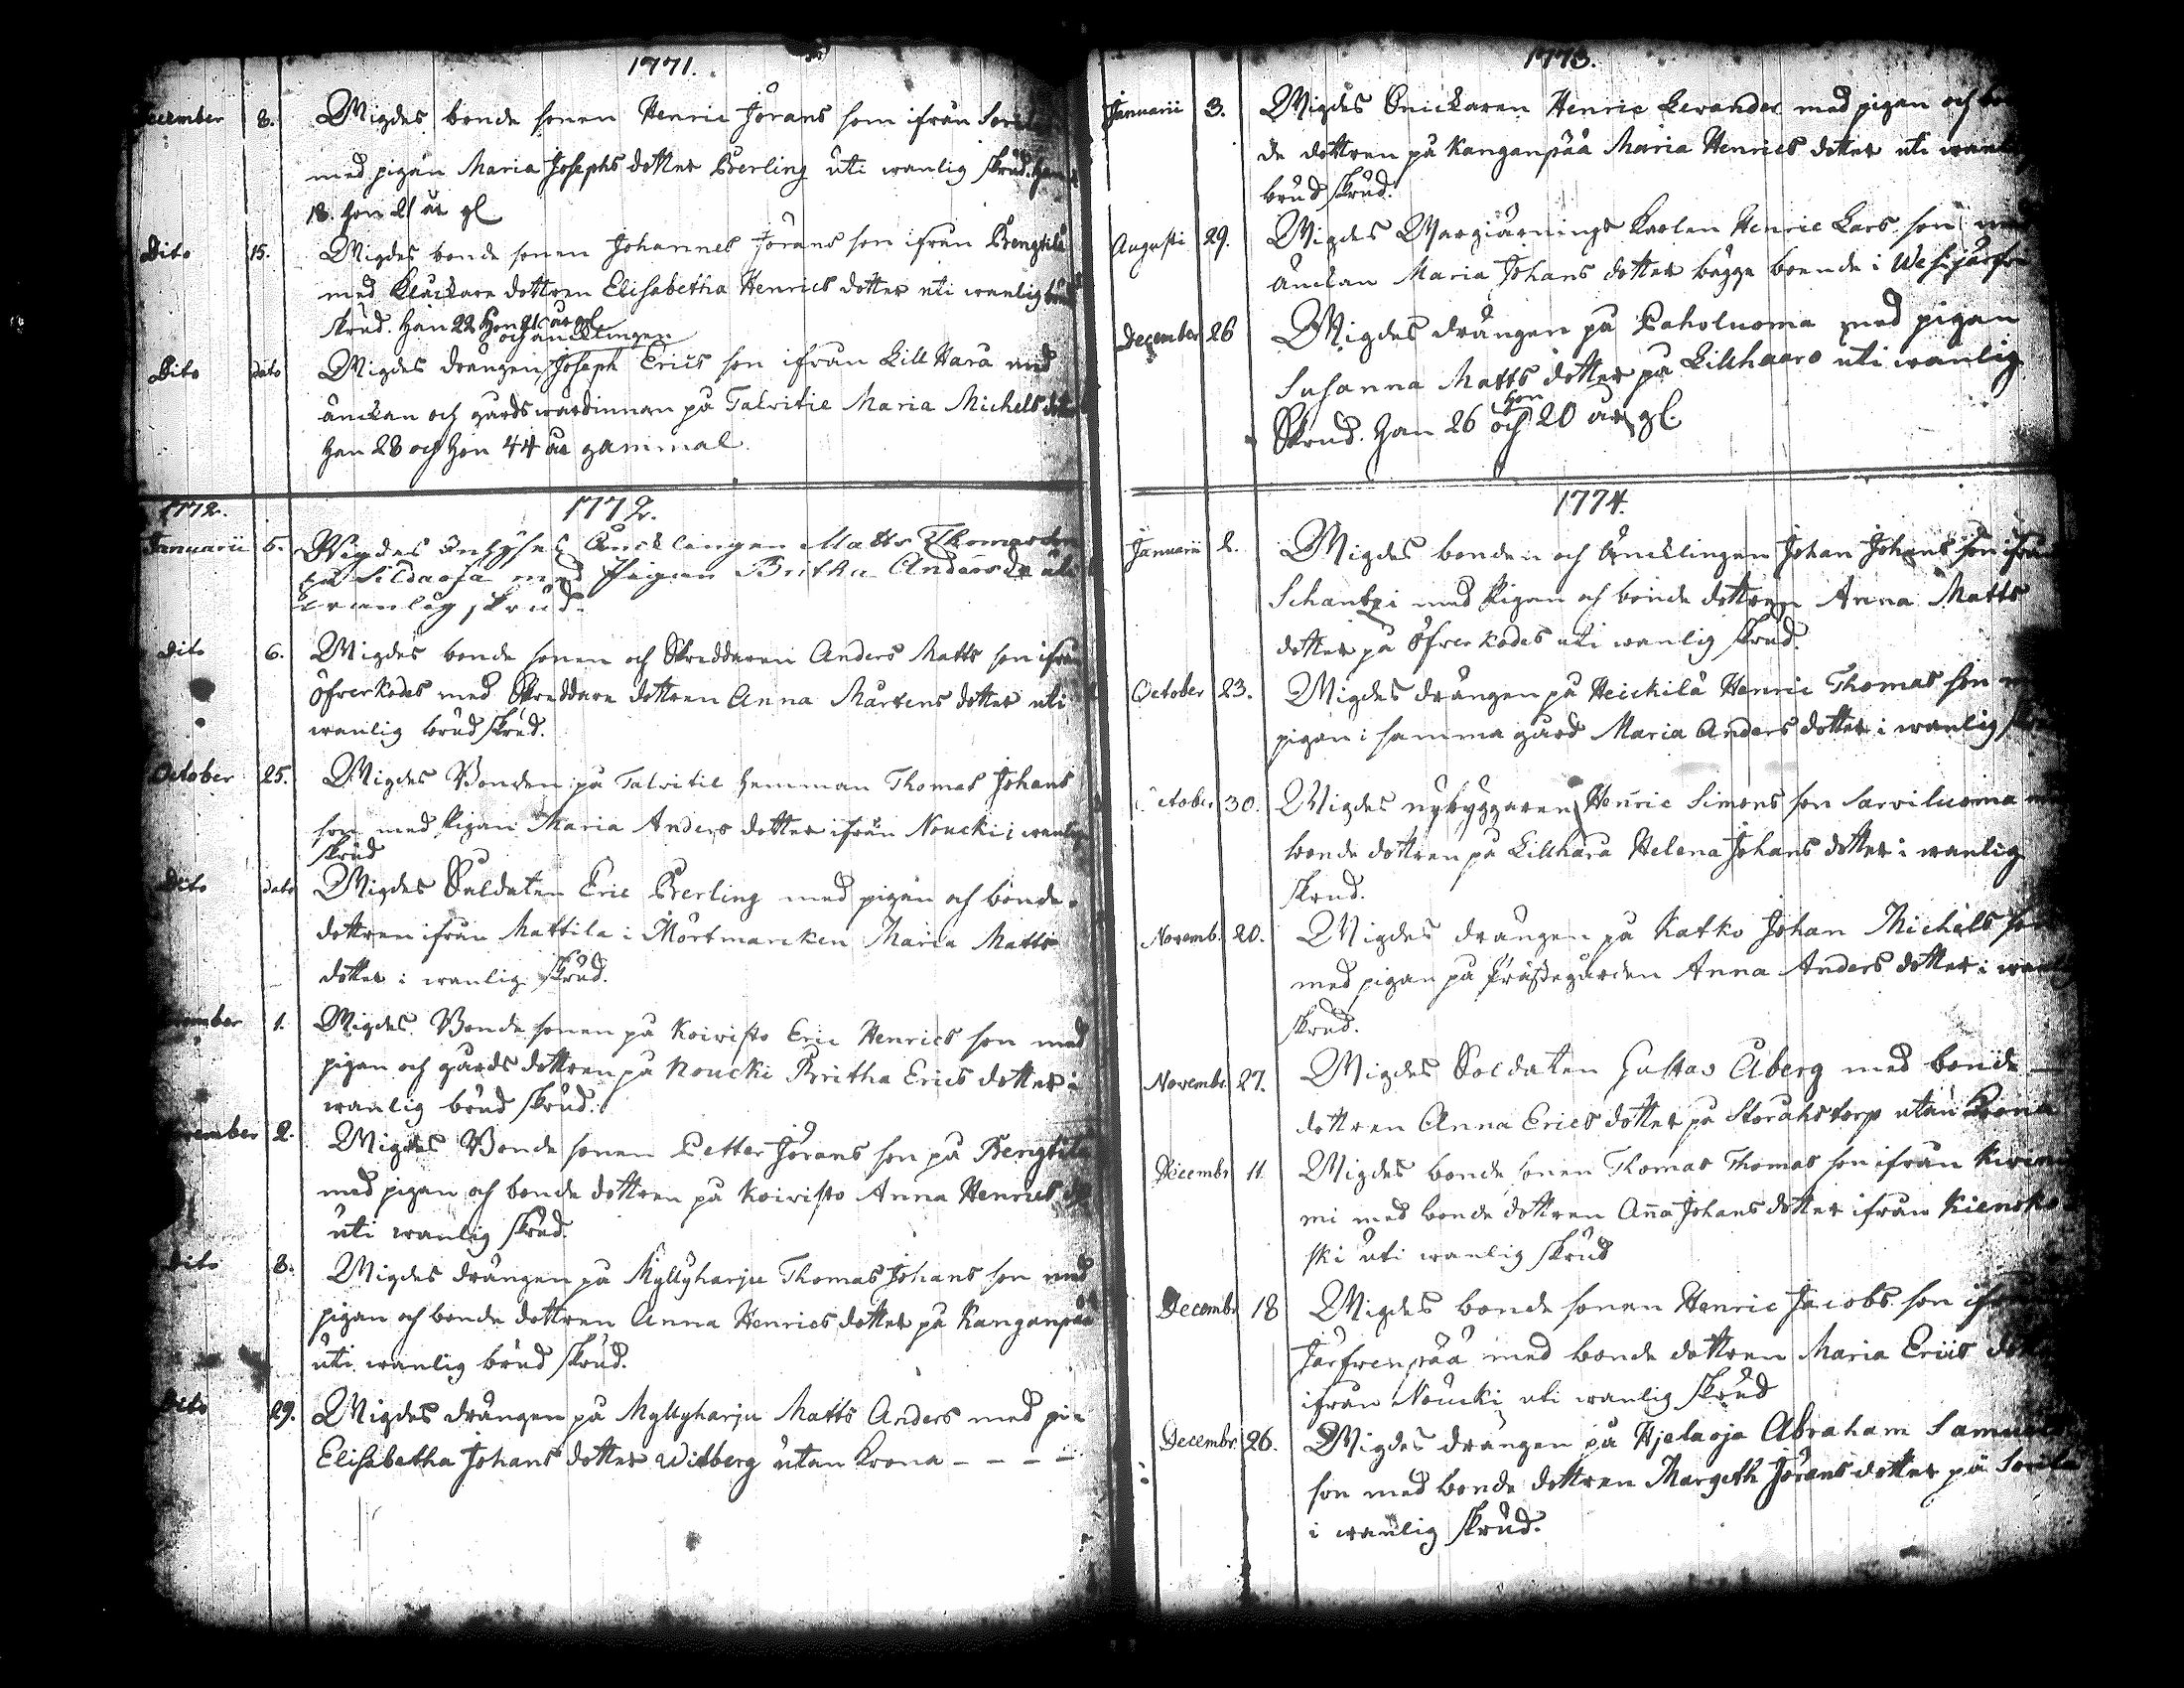 1771.
December 8. Wigdes bonde sonen Henric Jörans son ifrån Sorila
med pigan Maria Josephs dotter Berling uti wanlig skrud. Han
18. hon 21 år gl
Dito 15. Wigdes bonde sonen Johannes Jörans son ifrån Bengtilä
med Klåckare dottren Elisabetha Henrics dotter uti wanlig brud
skrud. Han 22 hon 21 år gl
och ancklingen
Dito dato Wigdes drängen Joseph Erics son ifrån Lill Harå med
änckan och gårds wärdinnan på Talvitie Maria Michels dotter
Han 28 och hon 44 år gammal.
1772. 1772.
Januarii 5. Wigdes Inhyses Äncklingen Matts Thomasson
på Sildaoja med Pigan Britha Andersdr uti
wanlig skrud.
dito 6. Wigdes bonde sonen och Skreddaren Anders Matts son ifrån
Öfverkodes med Skreddare dottren Anna Mårtens dotter uti
wanlig brud skrud.
October 25. Wigdes Bonden på Talvitie hemman Thomas Johans
son med Pigan Maria Anders dotter ifrån Noucki i wanlig
skrud
Dito dato Wigdes Saldaten Eric Berling med pigan och bonde
dottren ifrån Mattila i Mörtmarcken Maria Matts
dotter i wanlig skrud.
November 1. Wigdes Bonde sonen på Koivisto Eric Henrics son med
pigan och gårds dottren på Noucki Britha Erics dotter i
wanlig brud skrud.
November 2. Wigdes Bonde sonen Petter Jörans son på Bengtila
med pigan och bonde dottren på Koivisto Anna Henrics dr
uti wanlig skrud.
Dito 8. Wigdes drängen på Myllyharju Thomas Johans son med
pigan och bonde dottren Anna Henrics dotter på Kanganpää
uti wanlig brud skrud.
Dito 29. Wigdes drängen på Myllyharju Matts Anders med pi-
Elisabetha Johans dotter Widberg utan Krona - - - -
1773.
Januarii 3. Wigdes Snickaren Henric Levander med pigan och bon
de dottren på Kanganpää Maria Henrics dotter uti wanlig
brud skrud.
Augusti 29. Wigdes Wargiärnings Karlen Henric Lars son med
änckan Maria Johans dotter bägge boende i Wesijärfwi
December 26 Wigdes drängen på Paholuoma med pigan
Susanna Matts dotter på Lillhaaro uti wanlig
hon
Skrud. Han 26 och 20 år gl.
1774.
Januarii 2. Wigdes bonden och Äncklingen Johan Johans son ifrån
med Pigan och bonde dottren Anna Matts
dotter på Öfverkodes uti wanlig skrud.
October 23. Wigdes drängen på Heickilä Henric Thomas son med
pigan i samma gård Maria Anders dotter i wanlig skrud
October 30. Wigdes nybyggaren Henric Simons son Sarviluoma med
bonde dottren på Lillhara Helena Johans dotter i wanlig
skrud.
Novemb. 20. Wigdes drängen på Katko Johan Michels son
med pigan på Prästegården Anna Anders dotter i wanlig
skrud.
Novembr. 27. Wigdes Soldaten Gustav Åberg med bonde
dottren Anna Erics dotter på Storahstorp utan Krona
Decembr 11. Wigdes bonde sonen Thomas Thomas son ifrån
mi med bonde dottren Anna Johans dotter ifrån
ski uti wanlig skrud
Decembr 18 Wigdes bonde sonen Henric Jacobs son ifrån
Järfvenpää med bonde dottren Maria Erics dotter
ifrån Noucki uti wanlig skrud
Decembr. 26. Wigdes drängen på Hjelaoja Abraham Samuels
son med bonde dottren Margeth Jörans dotter på Sorila
i wanlig skrud.